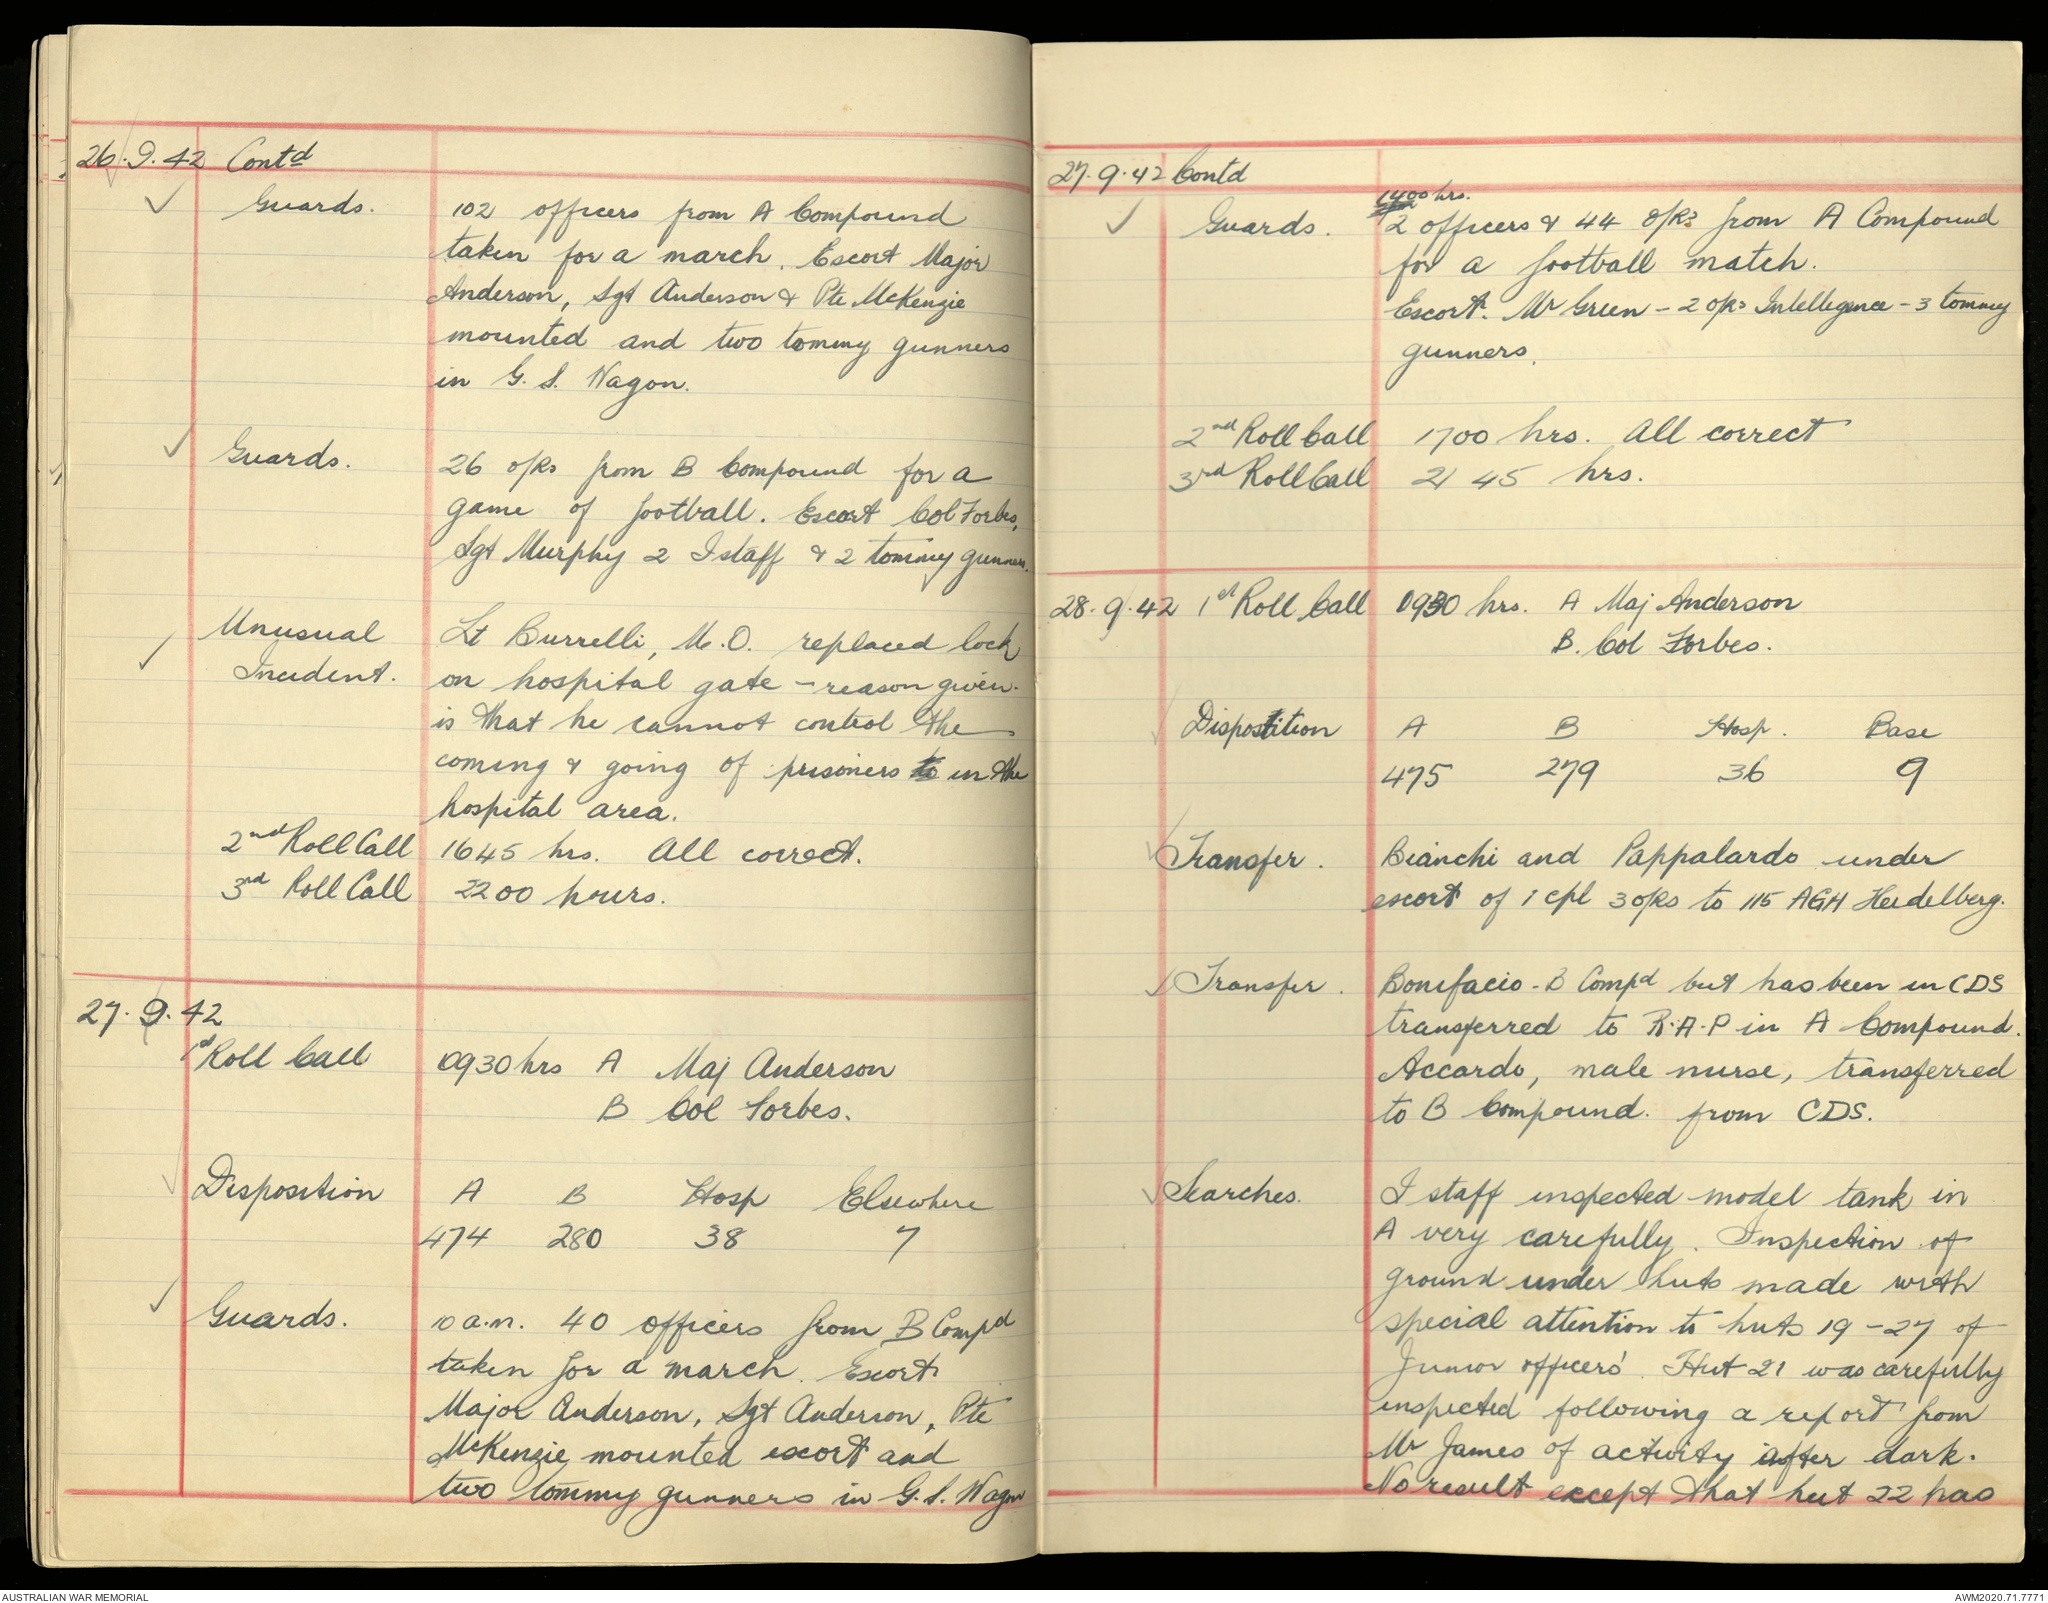 26.9.42 Contd
Guards. 102 officers from A Compound
taken for a march. Escort Major
Anderson, Sgt Anderson & Pte McKenzie
mounted and two tommy gunners
in G.S. Wagon.
Guards. 26 o/Rs from B Compound for a
game of football. Escort Col Forbes,
Sgt Murphy 2 I staff & 2 tommy gunners.
Unusual Lt Burrelli, M.O. replaced lock
Incident. on hospital gate – reason given
is that he cannot control the
coming & going of prisoners to in the
hospital area.
2nd Roll Call 1645 hrs. All correct.
3rd Roll Call 2200 hours.
27.9.42
1st Roll Call 0930 hrs A Maj Anderson
B Col Forbes.
Disposition A B Hosp Elsewhere
474 280 38 7
Guards. 10 a.m. 40 officers from B Compd
taken for a march. Escort
Major Anderson, Sgt Anderson, Pte
McKenzie mounted escort and
two tommy gunners in G.S. Wagon
27.9.42 Contd
1400 hrs.
Guards. 2 officers & 44 o/Rs from A Compound
for a football match.
Escort. Mr Green – 2 o/Rs Intellegence – 3 tommy
gunners.
2nd Roll Call 1700 hrs. All correct
3rd Roll Call 2145 hrs.
28.9.42 1st Roll Call 0930 hrs. A Maj Anderson
B. Col Forbes.
Disposition A B Hosp. Base
475 279 36 9
Transfer. Bianchi and Pappalardo under
escort of 1 cpl 3 o/Rs to 115 AGH Heidelberg.
Transfer. Bonifacio – B Compd but has been in CDS
transferred to R.A.P in A Compound.
Accardo, male nurse, transferred
to B Compound. from CDS.
Searches. I staff inspected model tank in
A very carefully. Inspection of
ground under huts made with
special attention to huts 19–27 of
Junior officers'. Hut 21 was carefully
inspected following a report from
Mr James of activity after dark.
No result except that hut 22 has
AUSTRALIAN WAR MEMORIAL
AWM2020.71.7771